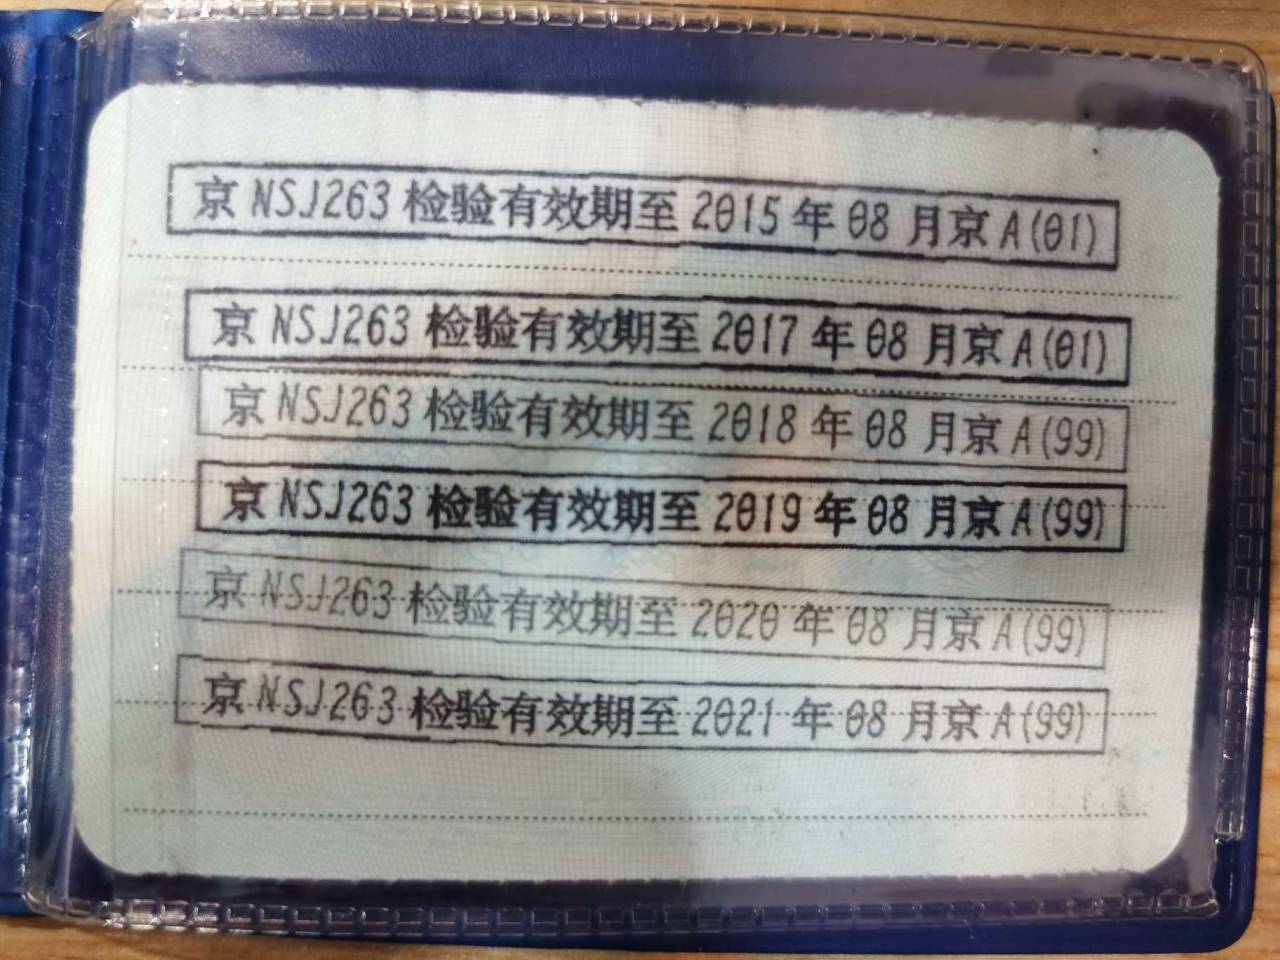 京NSJ263检验有效期至2015年08月京A(01)
京NSJ263检验有效期至2017年08月京A(01)
京NSJ263检验有效期至2018年08月京A(99)
京NSJ263检验有效期至2019年08月京A(99)
京NSJ263检验有效期至2020年08月京A(99)
京NSJ263检验有效期至2021年08月京A(99)